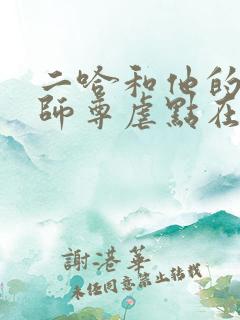 二哈和他的
師尊虐點在
謝港華
未經同意禁止轉載